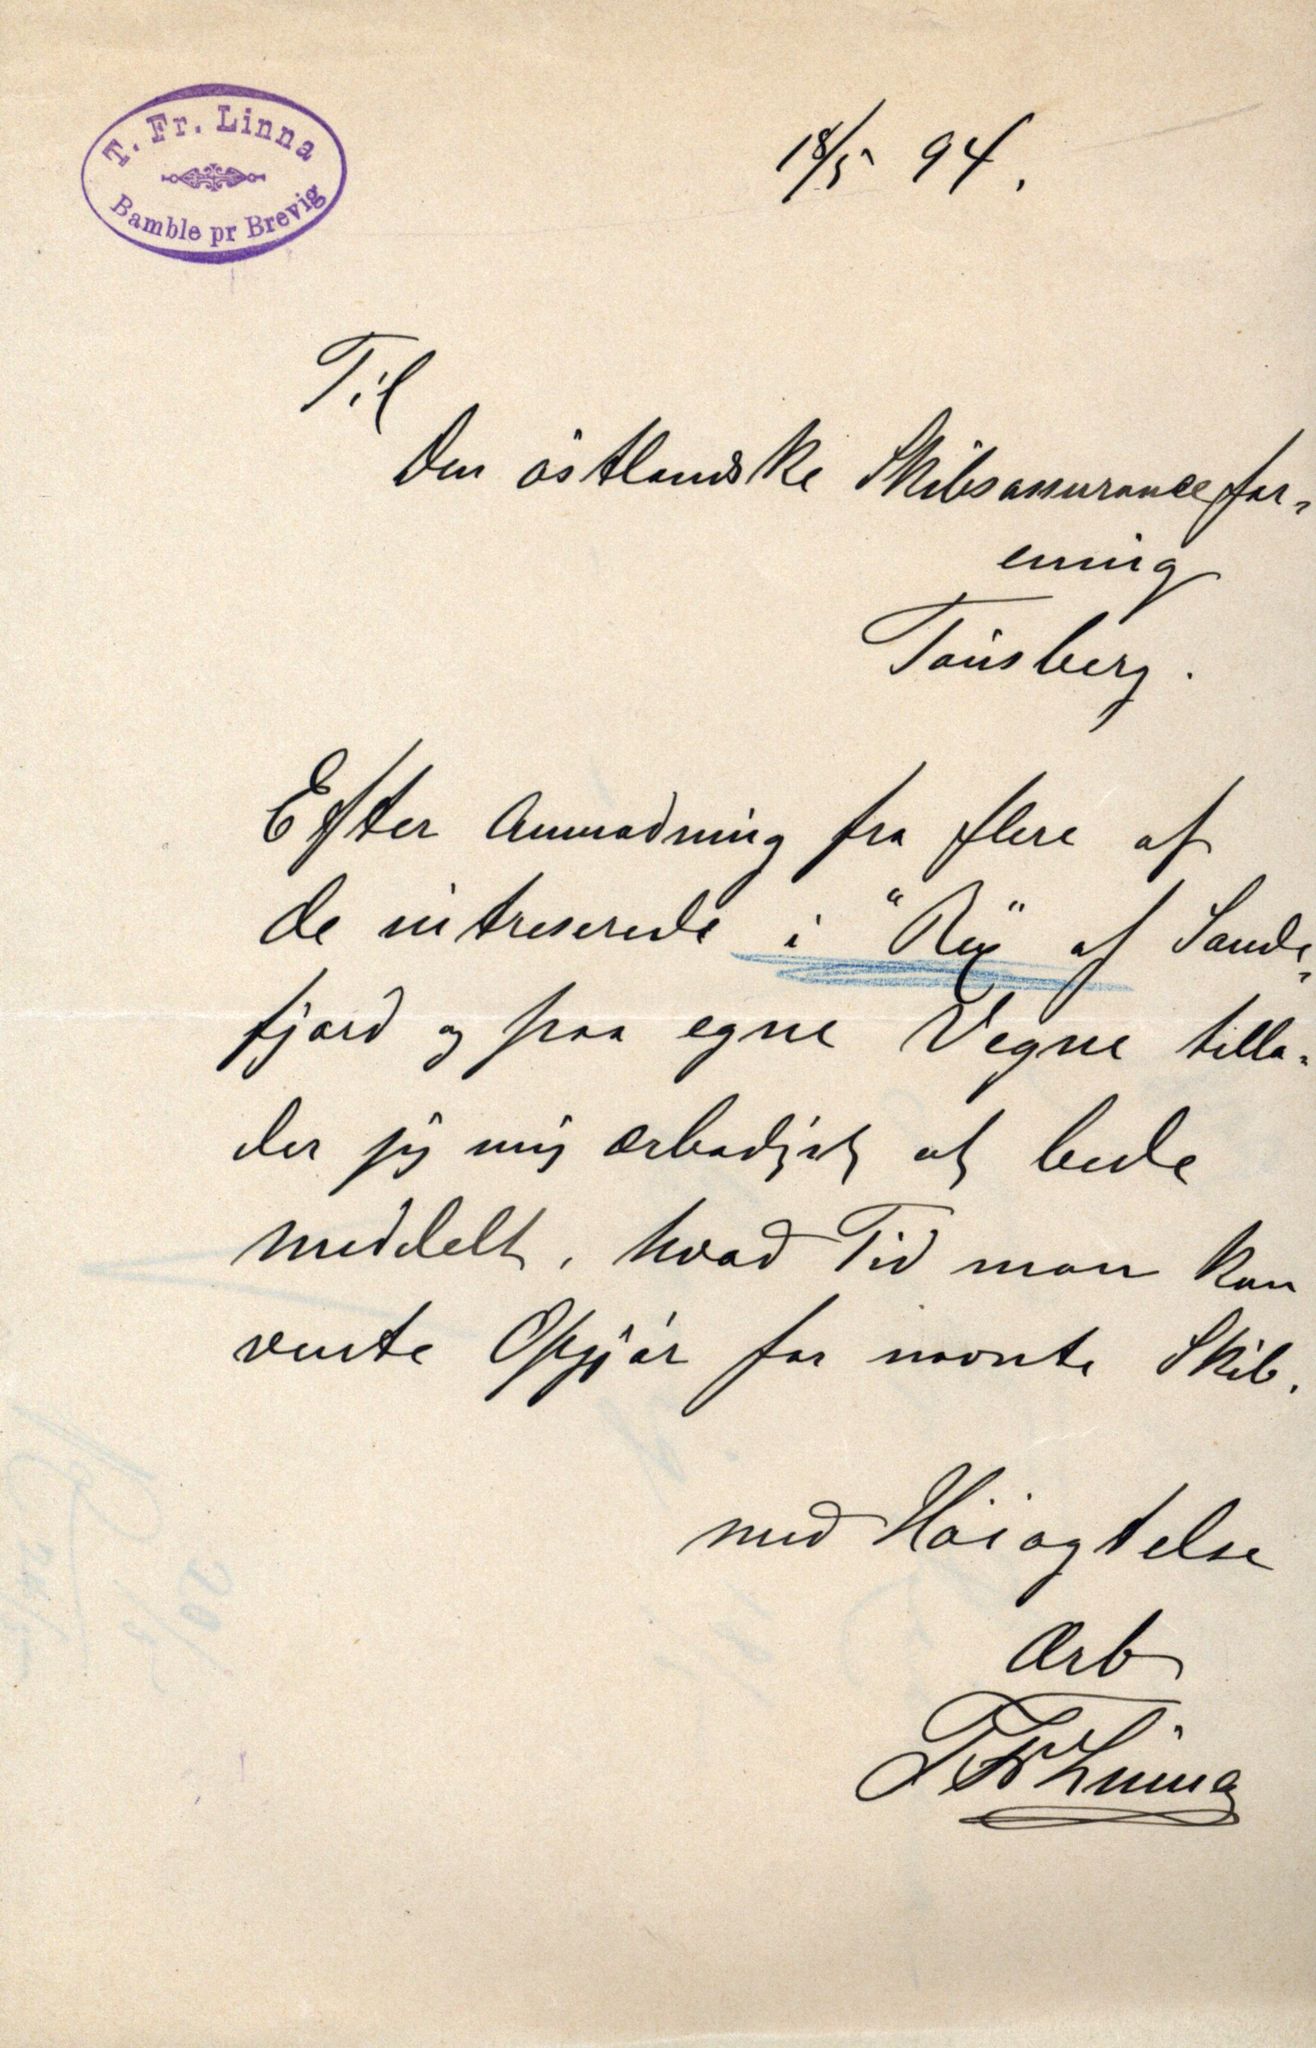 T. Fr. Linna
Bamble pr Brevig
18/5 94.
Til
Den östlandske Skibsassurancefor-
ening
Tönsberg.
Efter Anmodning fra flere af
de intreserede i "Rex" af Sande-
fjord og paa egne Vegne tilla-
der jeg mig ærbødigst at bede
meddelt, hvad Tid man kan
vente Opgjör for nævnte Skib.
med Höiagtelse
Ærb
T Fr Linna